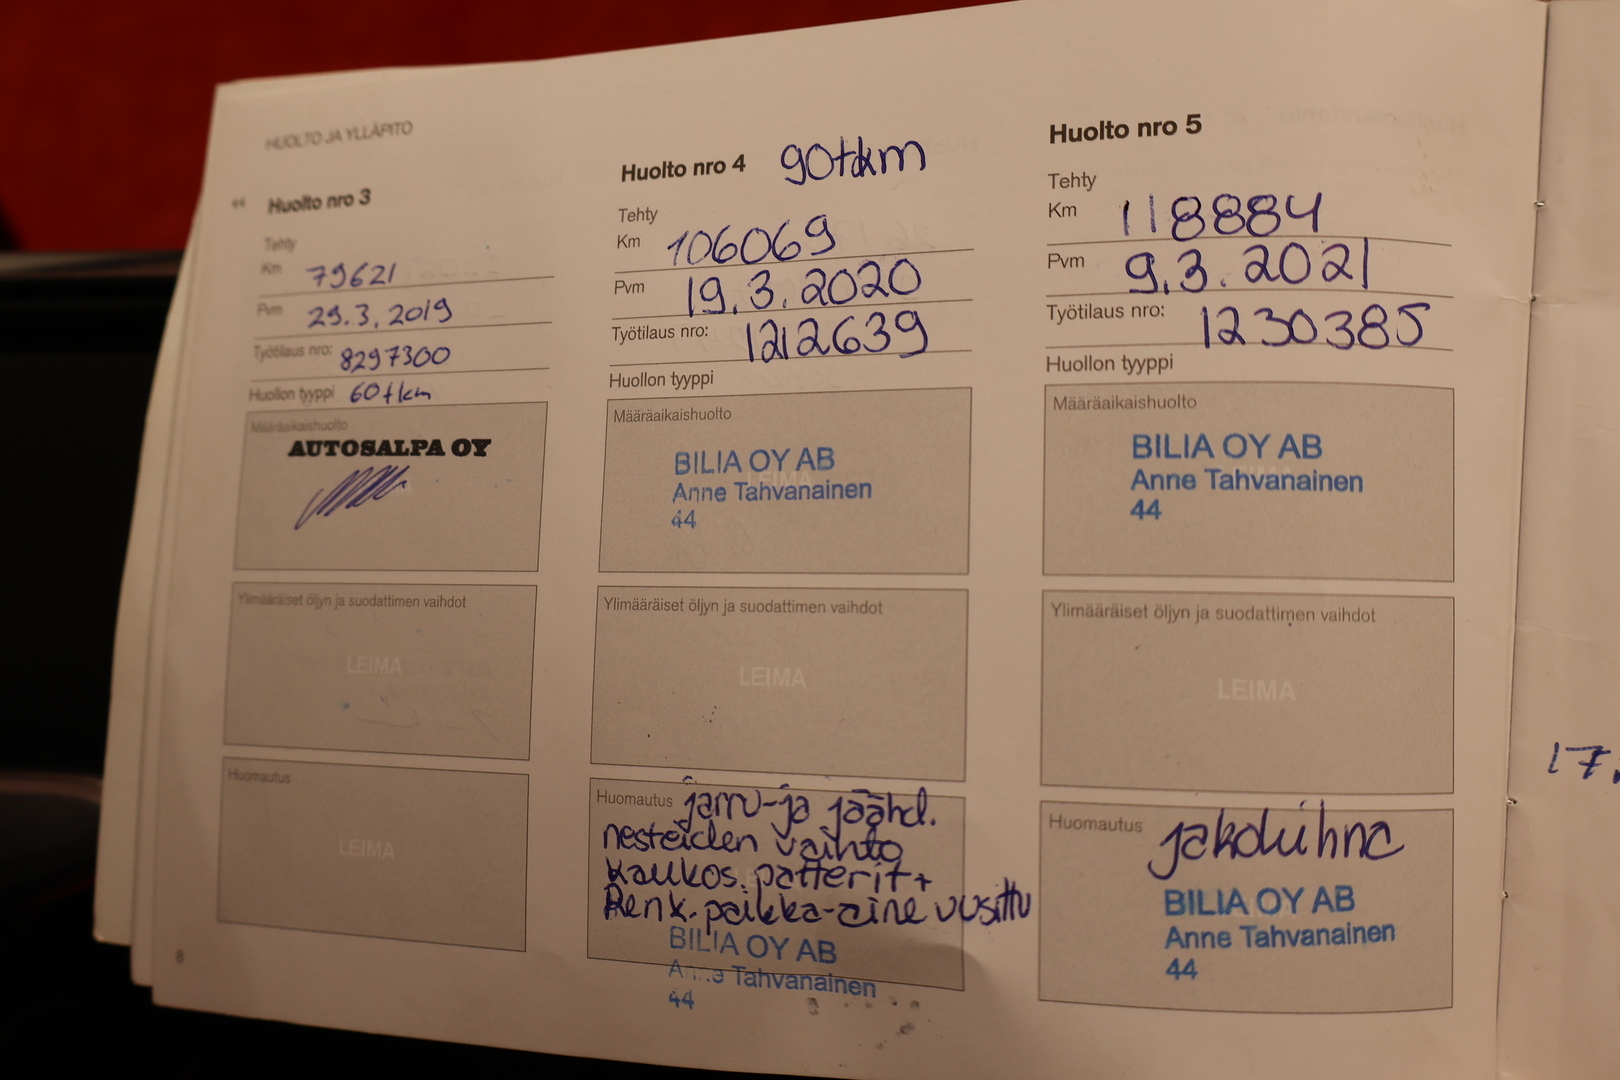 HUOLTO JA YLLÄPITO
Huolto nro 3
Tehty
Km 79621
Pvm 29.3.2019
Työtilaus nro: 8297300
Huollon tyyppi 60tkm
Määräaikaishuolto
AUTOSALPA OY
Ylimääräiset öljyn ja suodattimen vaihdot
LEIMA
Huomautus
LEIMA
8
Huolto nro 4 90tkm
Tehty
Km 106069
Pvm 19.3.2020
Työtilaus nro: 1212639
Huollon tyyppi
Määräaikaishuolto
LEIMA
BILIA OY AB
Anne Tahvanainen
44
Ylimääräiset öljyn ja suodattimen vaihdot
LEIMA
Huomautus jarru-ja jäähd.
nesteiden vaihto
kaukos. patterit +
Renk. paikka-aine uusittu
BILIA OY AB
Anne Tahvanainen
44
Huolto nro 5
Tehty
Km 118884
Pvm 9.3.2021
Työtilaus nro: 1230385
Huollon tyyppi
Määräaikaishuolto
BILIA OY AB
Anne Tahvanainen
44
Ylimääräiset öljyn ja suodattimen vaihdot
LEIMA
Huomautus jakohihna
BILIA OY AB
Anne Tahvanainen
44
17.